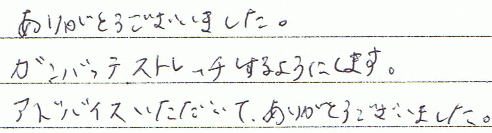 ありがとうございました。
ガンバッテストレッチするようにします。
アドバイスいただいて、ありがとうございました。